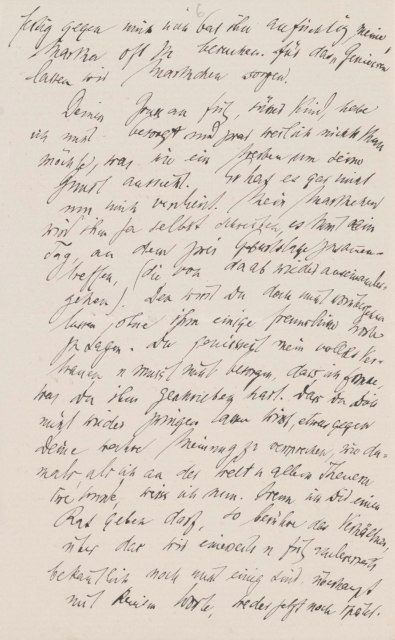 gegen mich und bat ihn aufrichtig meine
Martha oft zu besuchen. Für das Genieren
lassen wir Marthchen sorgen.
Deinen Gruss an Fritz, süsses Kind, habe
ich nicht besorgt und zwar weil ich nichts thun
möchte, was wie ein Streben um seine
Gunst aussieht. Er hat es gar nicht
um mich verdient. Mein Marthchen
wird ihm ja selbst schreiben, es kommt ein
Tag an dem zwei Geburtstage zusammen-
treffen, (die von da ab wieder auseinander-
gehen). Den wirst Du doch nicht vorübergehen
lassen ohne ihm einige freundliche Worte
zu sagen. Du geniesst mein volles Ver-
trauen u musst nicht besorgen, dass ich
was Du ihm geschrieben hast. Dass Du Dich
nicht wieder zwingen lassen wirst, etwas gegen
Deine wahre Meinung zu versprechen, wie da-
mals, als ich an der Welt u allem Theuern
irre wurde, weiss ich nun. Wenn ich Dir einen
Rat geben darf, so berühre das Verhältnis,
über das wir einerseits u Fritz andererseits
bekanntlich noch nicht einig sind, überhaupt
mit keinem Worte, weder jetzt noch später.